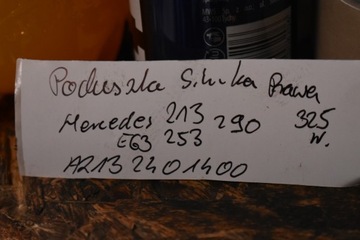 Poduszka Silnika Prawa
Mercedes 213 290 325
E63 253 W.
A213 240 1400